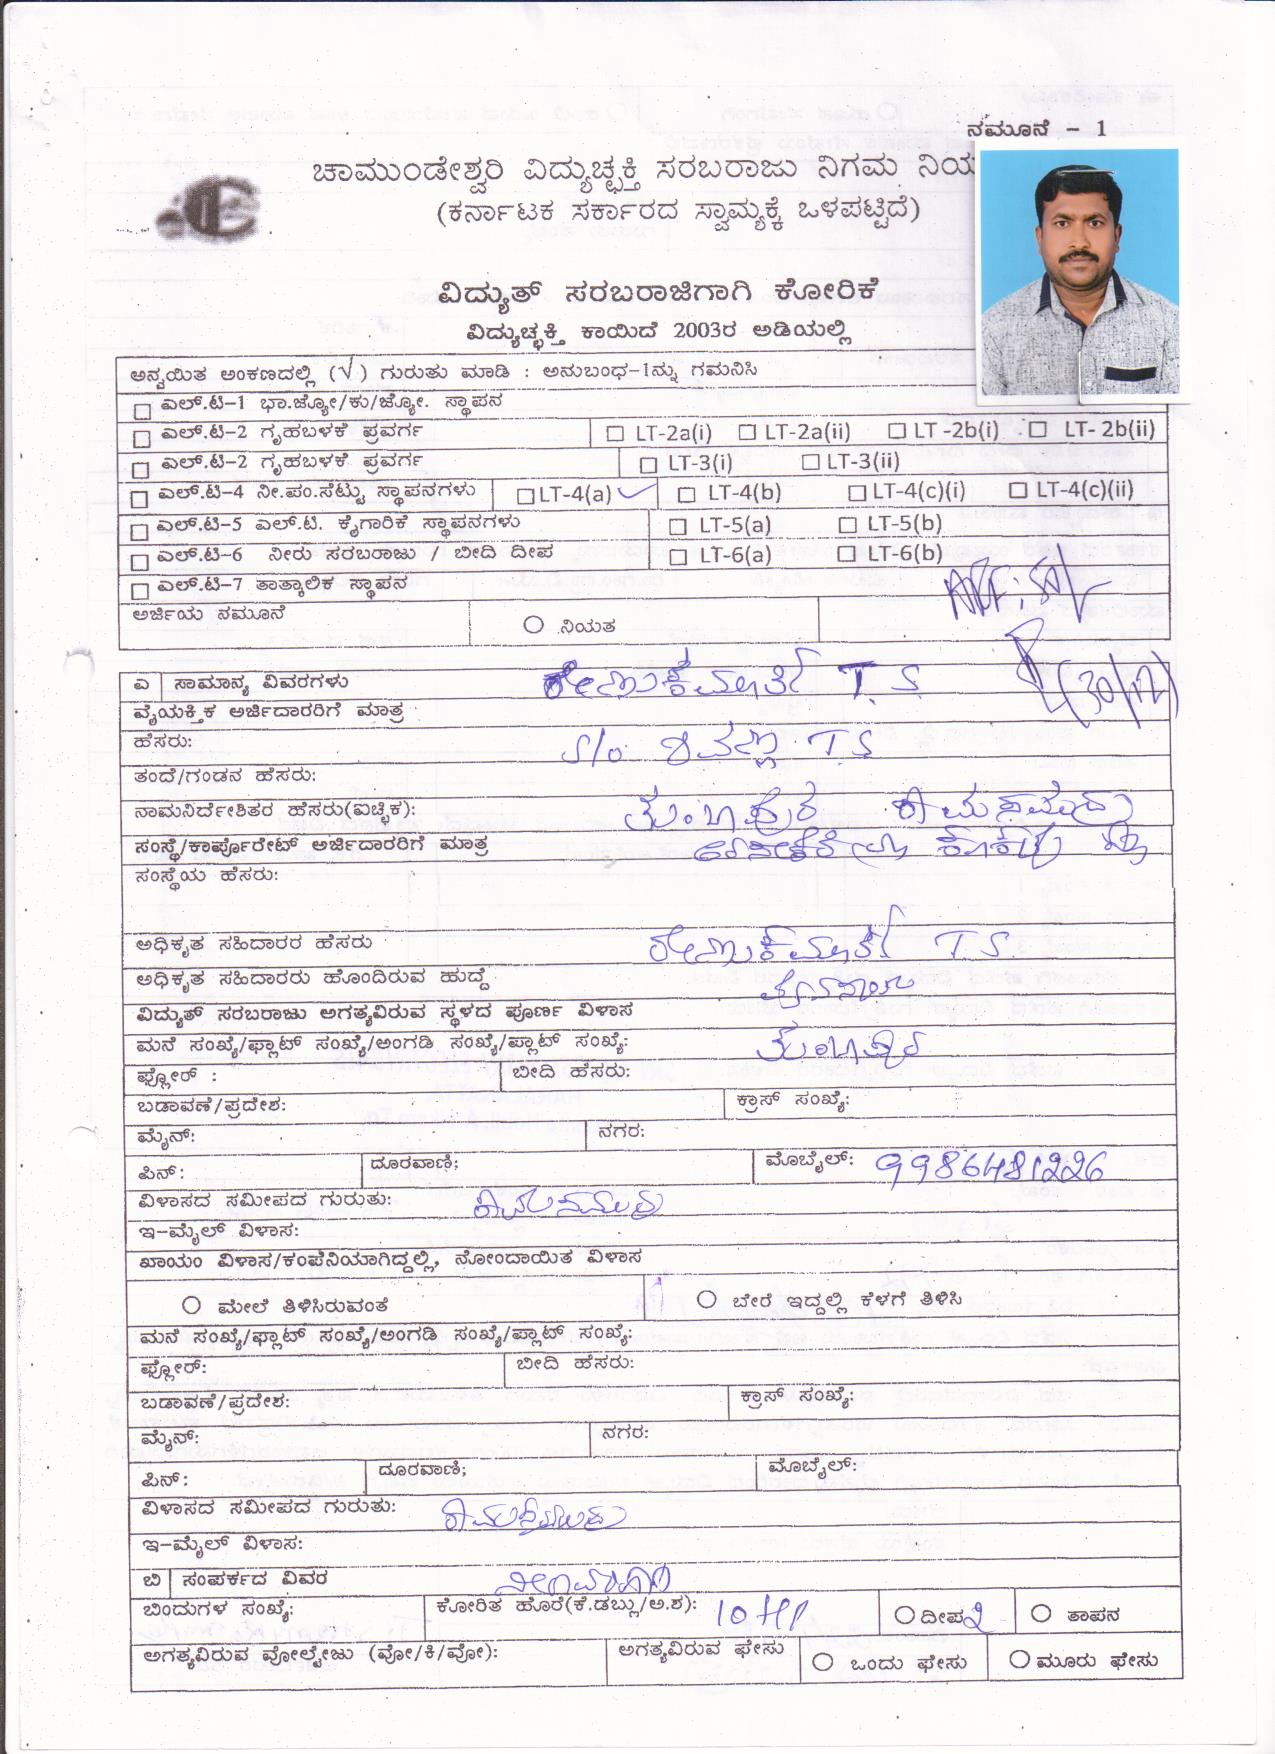 ನಮೂನೆ - 1
ಚಾಮುಂಡೇಶ್ವರಿ ವಿದ್ಯುಚ್ಛಕ್ತಿ ಸರಬರಾಜು ನಿಗಮ ನಿಯ
(ಕರ್ನಾಟಕ ಸರ್ಕಾರದ ಸ್ವಾಮ್ಯಕ್ಕೆ ಒಳಪಟ್ಟಿದೆ)
ವಿದ್ಯುತ್ ಸರಬರಾಜಿಗಾಗಿ ಕೋರಿಕೆ
ವಿದ್ಯುಚ್ಛಕ್ತಿ ಕಾಯಿದೆ 2003ರ ಅಡಿಯಲ್ಲಿ
ಅನ್ವಯಿತ ಅಂಕಣದಲ್ಲಿ (√) ಗುರುತು ಮಾಡಿ : ಅನುಬಂಧ-1ನ್ನು ಗಮನಿಸಿ
ಎಲ್.ಟಿ-1 ಭಾ.ಜ್ಯೋ/ಕು/ಜ್ಯೋ. ಸ್ಥಾಪನ
ಎಲ್.ಟಿ-2 ಗೃಹಬಳಕೆ ಪ್ರವರ್ಗ LT-2a(i) LT-2a(ii) LT -2b(i) LT- 2b(ii)
ಎಲ್.ಟಿ-2 ಗೃಹಬಳಕೆ ಪ್ರವರ್ಗ LT-3(i) LT-3(ii)
ಎಲ್.ಟಿ-4 ನೀ.ಪಂ.ಸೆಟ್ಟು ಸ್ಥಾಪನಗಳು LT-4(a) ✓ LT-4(b) LT-4(c)(i) LT-4(c)(ii)
ಎಲ್.ಟಿ-5 ಎಲ್.ಟಿ. ಕೈಗಾರಿಕೆ ಸ್ಥಾಪನಗಳು LT-5(a) LT-5(b)
ಎಲ್.ಟಿ-6 ನೀರು ಸರಬರಾಜು / ಬೀದಿ ದೀಪ LT-6(a) LT-6(b)
ಎಲ್.ಟಿ-7 ತಾತ್ಕಾಲಿಕ ಸ್ಥಾಪನ
ಅರ್ಜಿಯ ನಮೂನೆ ನಿಯತ
ಎ ಸಾಮಾನ್ಯ ವಿವರಗಳು T. S.
ವೈಯಕ್ತಿಕ ಅರ್ಜಿದಾರರಿಗೆ ಮಾತ್ರ
ಹೆಸರು: S/o ಶಿವಣ್ಣ T S
ತಂದೆ/ಗಂಡನ ಹೆಸರು:
ನಾಮನಿರ್ದೇಶಿತರ ಹೆಸರು(ಐಚ್ಛಿಕ):
ಸಂಸ್ಥೆ/ಕಾರ್ಪೊರೇಟ್ ಅರ್ಜಿದಾರರಿಗೆ ಮಾತ್ರ
ಸಂಸ್ಥೆಯ ಹೆಸರು:
ಅಧಿಕೃತ ಸಹಿದಾರರ ಹೆಸರು T S.
ಅಧಿಕೃತ ಸಹಿದಾರರು ಹೊಂದಿರುವ ಹುದ್ದೆ
ವಿದ್ಯುತ್ ಸರಬರಾಜು ಅಗತ್ಯವಿರುವ ಸ್ಥಳದ ಪೂರ್ಣ ವಿಳಾಸ
ಮನೆ ಸಂಖ್ಯೆ/ಫ್ಲಾಟ್ ಸಂಖ್ಯೆ/ಅಂಗಡಿ ಸಂಖ್ಯೆ/ಪ್ಲಾಟ್ ಸಂಖ್ಯೆ:
ಫ್ಲೋರ್ : ಬೀದಿ ಹೆಸರು:
ಬಡಾವಣೆ/ಪ್ರದೇಶ: ಕ್ರಾಸ್ ಸಂಖ್ಯೆ:
ಮೈನ್: ನಗರ:
ಪಿನ್: ದೂರವಾಣಿ; ಮೊಬೈಲ್: 9986481226
ವಿಳಾಸದ ಸಮೀಪದ ಗುರುತು:
ಇ-ಮೈಲ್ ವಿಳಾಸ:
ಖಾಯಂ ವಿಳಾಸ/ಕಂಪೆನಿಯಾಗಿದ್ದಲ್ಲಿ, ನೋಂದಾಯಿತ ವಿಳಾಸ
ಮೇಲೆ ತಿಳಿಸಿರುವಂತೆ ಬೇರೆ ಇದ್ದಲ್ಲಿ ಕೆಳಗೆ ತಿಳಿಸಿ
ಮನೆ ಸಂಖ್ಯೆ/ಫ್ಲಾಟ್ ಸಂಖ್ಯೆ/ಅಂಗಡಿ ಸಂಖ್ಯೆ/ಪ್ಲಾಟ್ ಸಂಖ್ಯೆ:
ಫ್ಲೋರ್: ಬೀದಿ ಹೆಸರು:
ಬಡಾವಣೆ/ಪ್ರದೇಶ: ಕ್ರಾಸ್ ಸಂಖ್ಯೆ:
ಮೈನ್: ನಗರ:
ಪಿನ್: ದೂರವಾಣಿ; ಮೊಬೈಲ್:
ವಿಳಾಸದ ಸಮೀಪದ ಗುರುತು:
ಇ-ಮೈಲ್ ವಿಳಾಸ:
ಬಿ ಸಂಪರ್ಕದ ವಿವರ
ಬಿಂದುಗಳ ಸಂಖ್ಯೆ: ಕೋರಿತ ಹೊರೆ(ಕೆ.ಡಬ್ಲು/ಅ.ಶ): 10 HP ದೀಪ 2 ತಾಪನ
ಅಗತ್ಯವಿರುವ ವೋಲ್ಟೇಜು (ವೋ/ಕಿ/ವೋ): ಅಗತ್ಯವಿರುವ ಫೇಸು ಒಂದು ಫೇಸು ಮೂರು ಫೇಸು